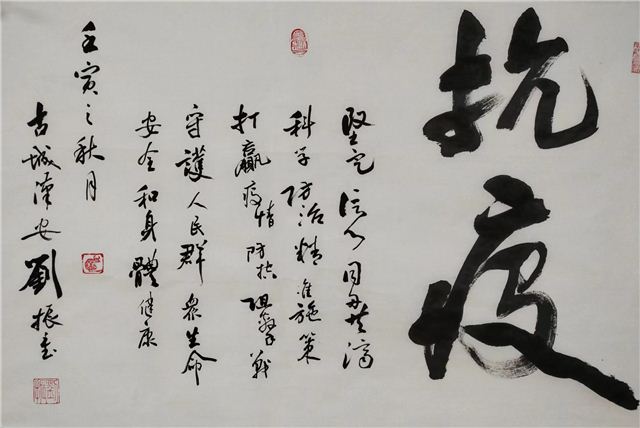 抗疫
堅定信心同舟共濟
科学防治精准施策
打贏疫情防控阻擊战
守護人民群眾生命
安全和身體健康
壬寅之秋月
古城漢安劉振